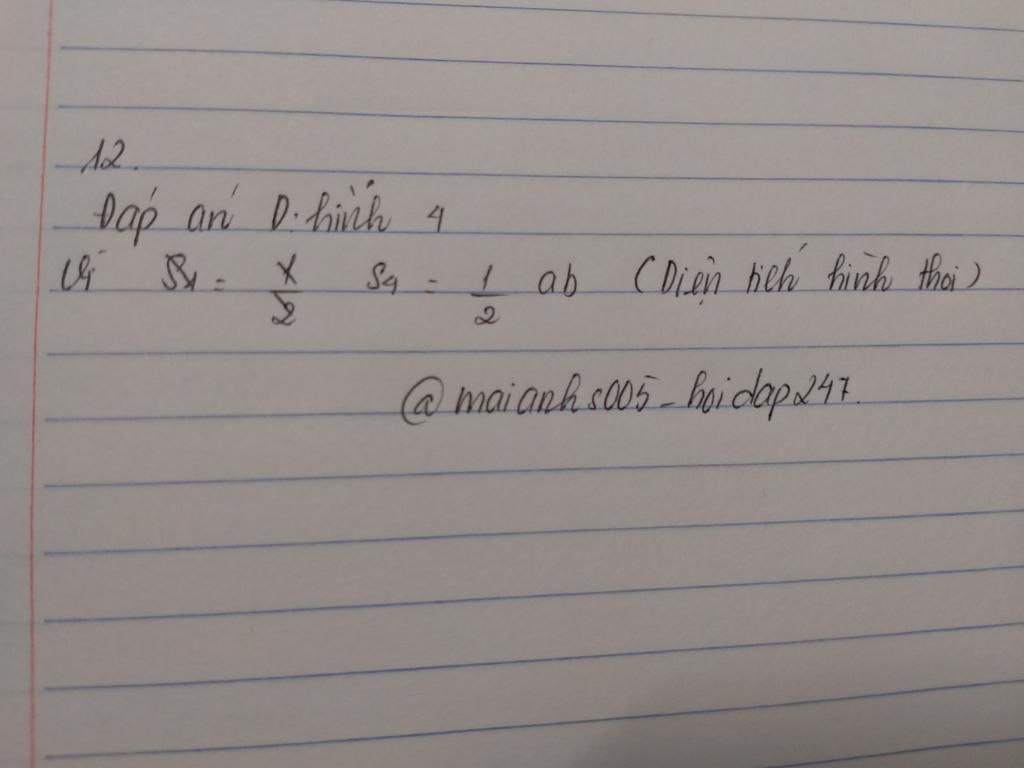 12.
Đáp án D. hình 4
Vì S₄ = 1/2 ab (Diện tích hình thoi)
@maianhs005_hoidap247.